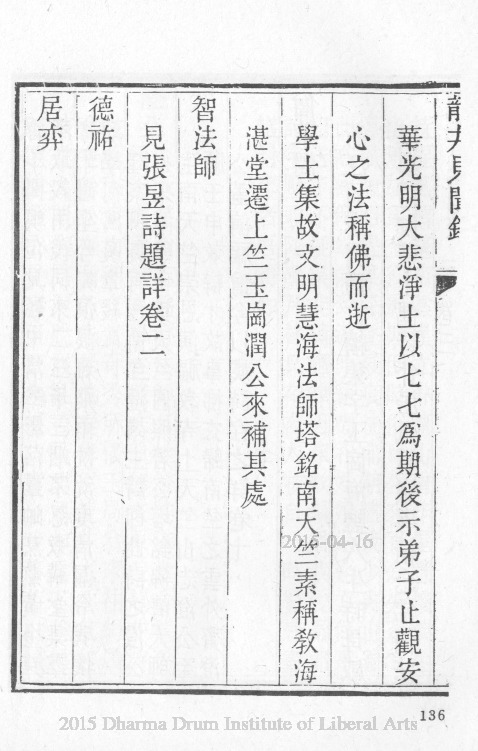 龍井見聞錄
華光明大悲淨土以七七爲期後示弟子止觀安
心之法稱佛而逝
學士集故文明慧海法師塔銘南天竺素稱敎海
湛堂遷上竺玉崗潤公來補其處
智法師
見張昱詩題詳卷二
德祐
居弈
2015-04-16
136
2015 Dharma Drum Institute of Liberal Arts